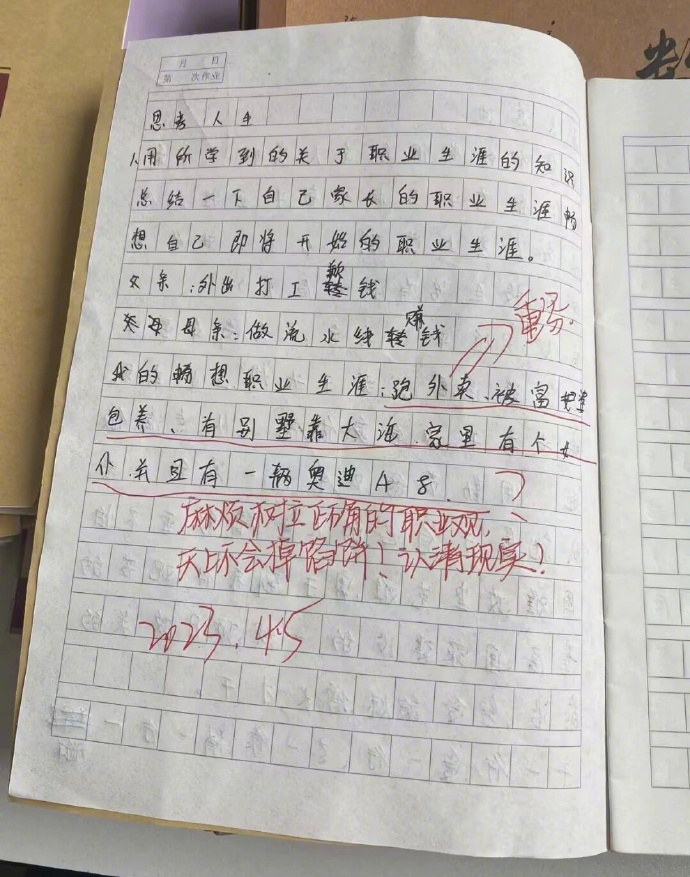 月 日
第 次作业
思考人生
1、用所学到的关于职业生涯的知识
总结一下自己家长的职业生涯畅
想自己即将开始的职业生涯。
父亲:外出打工赚钱
母亲:做流水线赚钱
我的畅想职业生涯:跑外卖、被富婆
包养、有别墅靠大海、家里有个女
仆、并且有一辆奥迪A8.
重写.
麻烦树立正确的职业观,
天上不会掉馅饼!认清现实!
2023.4.5